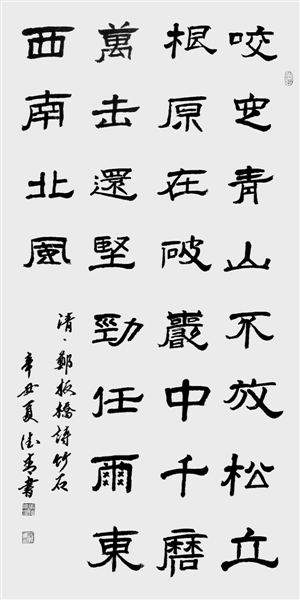 咬定青山不放松立
根原在破巖中千磨
萬击還堅勁任爾東
西南北風
清·鄭板橋詩竹石
辛丑夏書